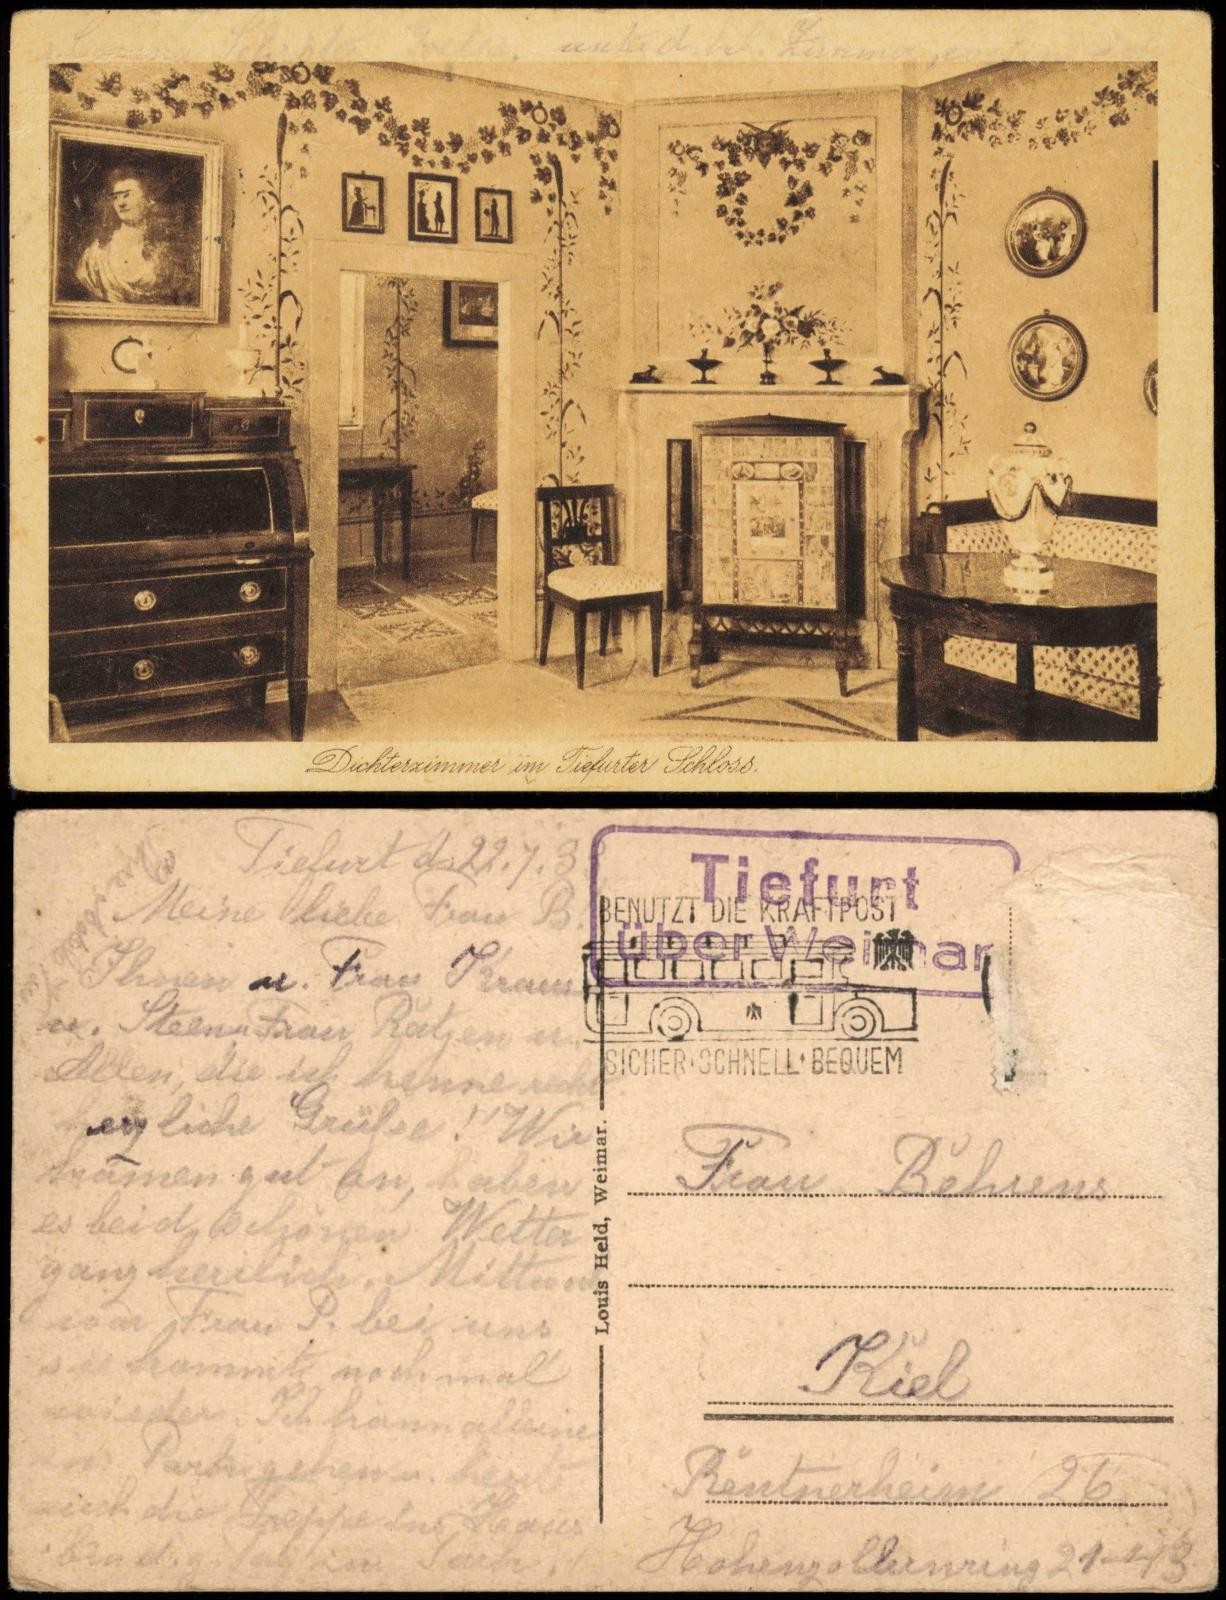 Dichterzimmer im Tiefurter Schloss.
Tiefurt d. 22.7.3
Meine liebe Frau B!
Ihnen u. Frau Kraus
u. Steen, Frau Rätzen u.
Allen, die ich kenne recht
herzliche Grüße! Wir
kamen gut an, haben
es beid. schönen Wetter
ganz herrlich. Mittwoch
war Frau P. bei uns
sie kommt noch mal
wieder. Ich kann alleine
im Park gehen u. heute
auch die Treppe ins Haus
Tiefurt
über Weimar
BENUTZT DIE KRAFTPOST
SICHER·SCHNELL·BEQUEM
Louis Held, Weimar.
Frau Behrens
Kiel
Rentnerheim 26
Hohenzollernring 21-43